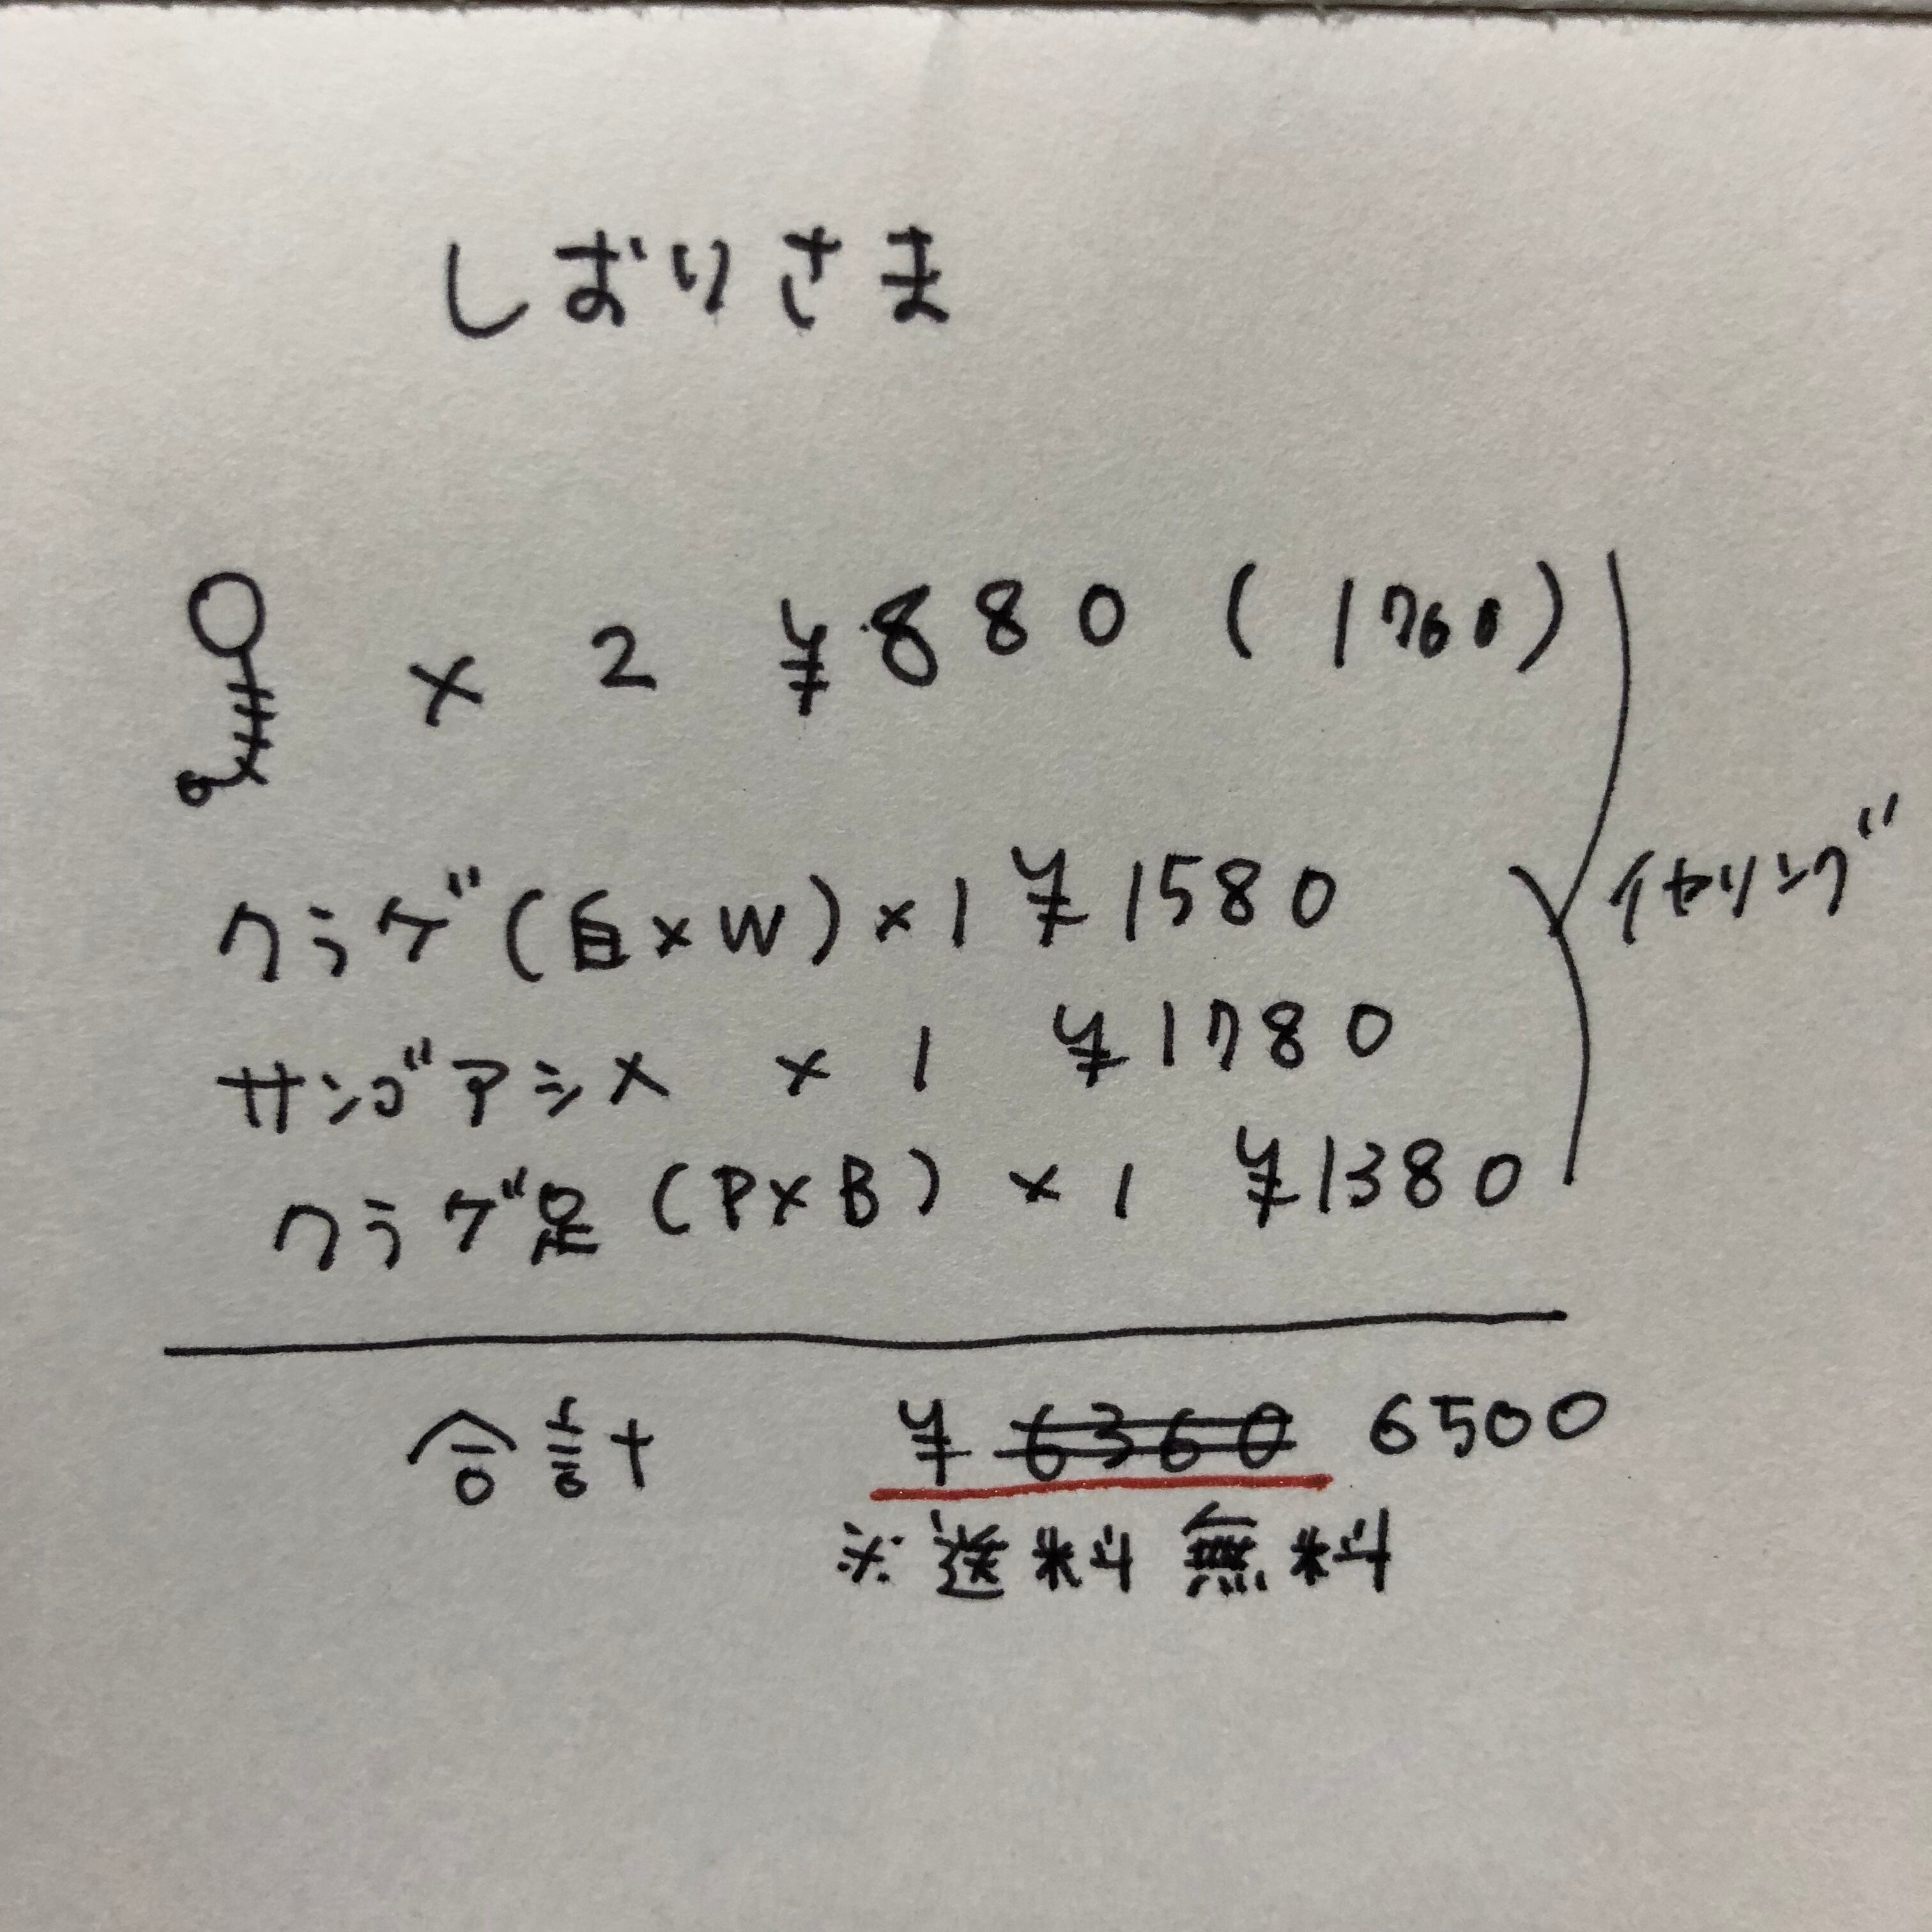 しおりさま
× 2 ¥880 (1760)
クラゲ(白×W)×1 ¥1580
サンゴアシメ × 1 ¥1780
クラゲ足(P×B) ×1 ¥1380
イヤリング
合計 ¥6360 6500
※送料無料